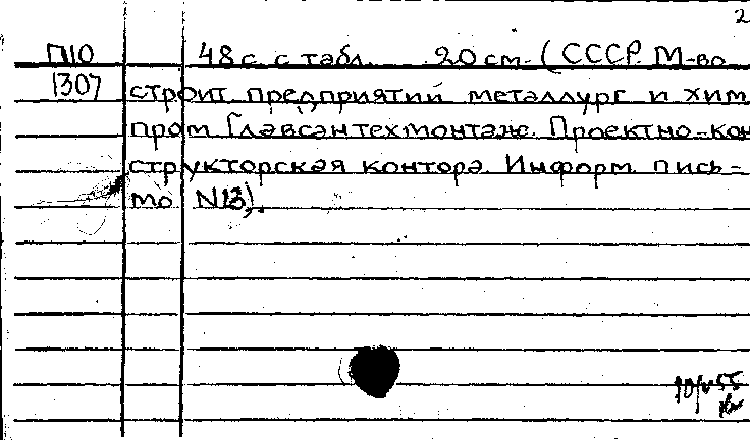 2
П10 48 с. с табл. 20 см. (СССР. М-во
1307 строит предприятий металлург и хим
пром Главсантехмонтаж. Проектно-кон
структорская контора. Информ. пись-
мо N13).